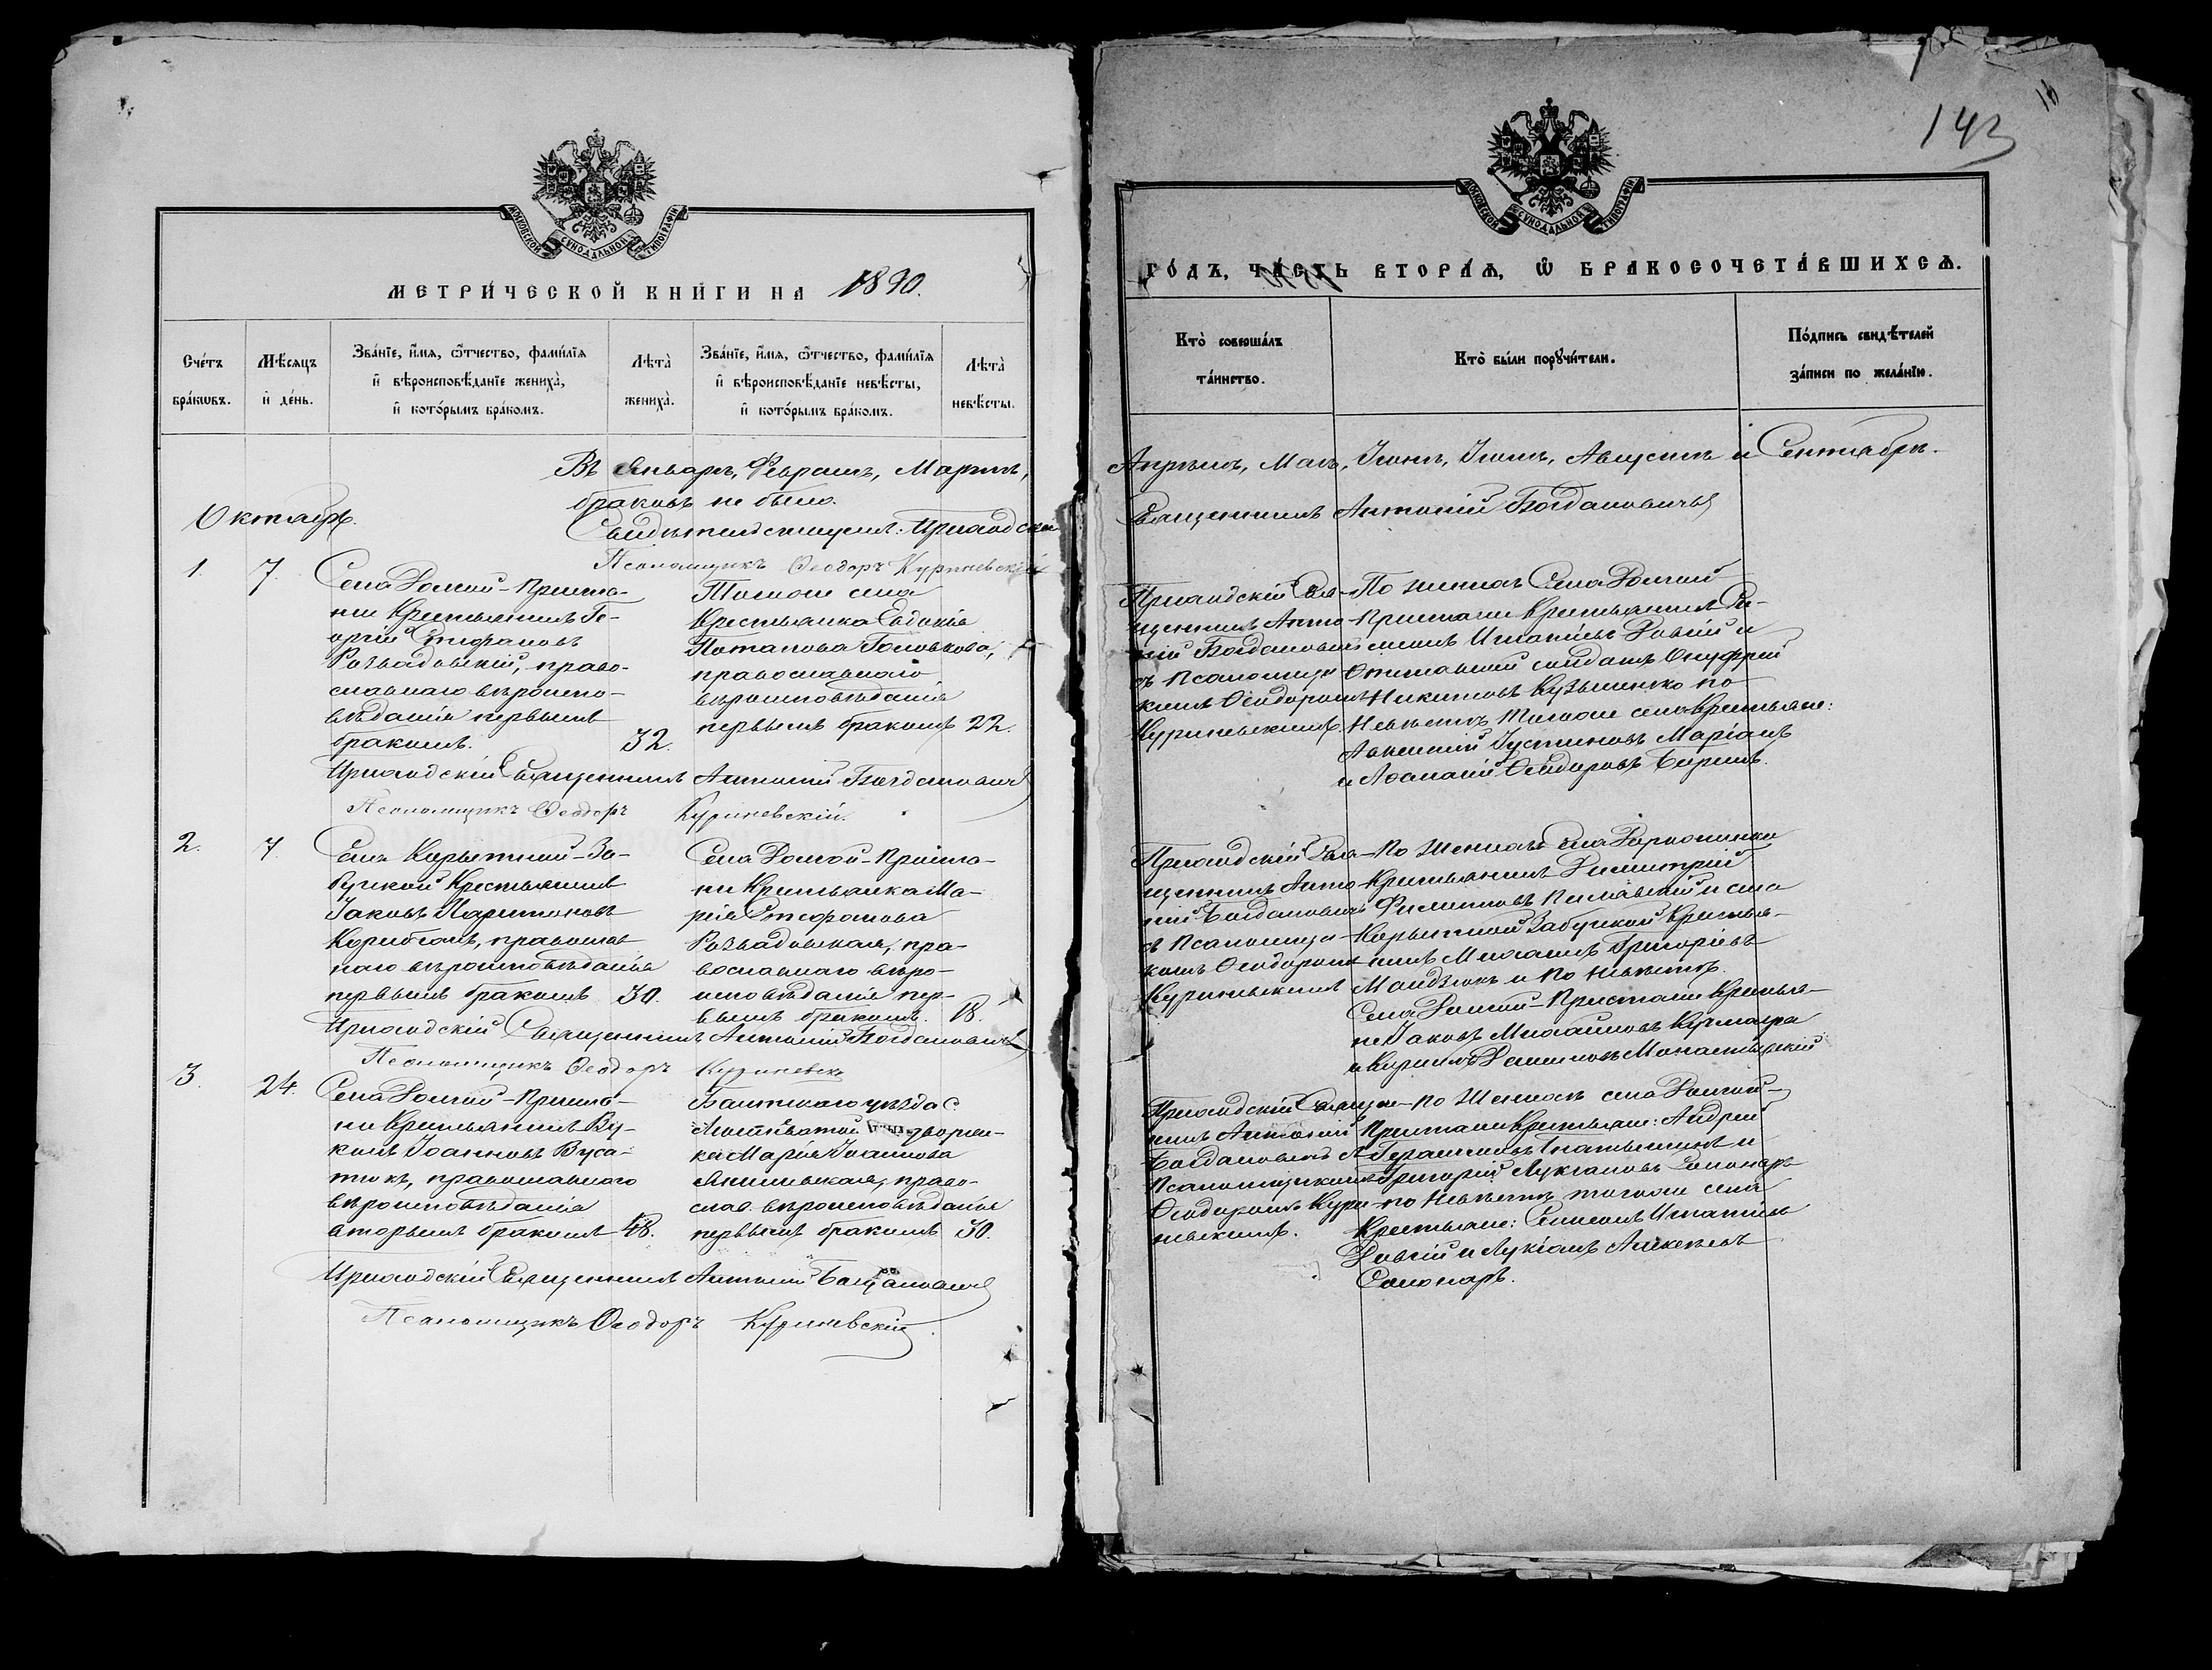 143
МОСКОВСКОЙ СУНОДАЛЬНОЙ ТИПОГРАФІИ
МЕТРИ́ЧЕСКОЙ КНИ́ГИ НА 1890.
Сче́тъ бра́кѡвъ.
Мѣ́сяцъ и҆ де́нь.
Зва́нїе, и҆́мя, ѻ҆́тчество, фами́лїя и҆ вѣроисповѣ́данїе жениха̀, и҆ кото́рымъ бра́комъ.
Лѣта̀ жениха̀.
Зва́нїе, и҆́мя, ѻ҆́тчество, фами́лїя и҆ вѣроисповѣ́данїе невѣ́сты, и҆ кото́рымъ бра́комъ.
Лѣта̀ невѣ́сты.
Въ Январѣ, Февралѣ, Мартѣ,
браковъ не было.
Октябрь.
Свидѣтельствуемъ: Приходскій
Псаломщикъ Ѳеодоръ Куриневскій
1.
7.
Села Долгой-Приста-
ни Крестьянинъ Ге-
оргій Стефановъ
Розвадовскій, право-
славнаго вѣроиспо-
вѣданія первымъ
бракомъ.
32.
Тогоже села
Крестьянка Евдокія
Потапова Головкова,
православнаго
вѣроисповѣданія
первымъ бракомъ
22.
Приходскій Священникъ Антоній Богдановичъ
Псаломщикъ Ѳеодоръ Куриневскій.
2.
7.
Села Корытной-За-
бугской Крестьянинъ
Іаковъ Харитоновъ
первымъ бракомъ
30.
Села Долгой-Приста-
ни Крестьянка Ма-
рія Стефанова
Розвадовская, пра-
вославнаго вѣро-
исповѣданія пер-
вымъ бракомъ.
18.
Приходскій Священникъ Антоній Богдановичъ
Псаломщикъ Ѳеодоръ Куриневскій
3.
24.
Села Долгой-Приста-
ни Крестьянинъ Ву-
колъ Іоанновъ Вуса-
тюкъ, православнаго
вѣроисповѣданія
вторымъ бракомъ
48.
Балтскаго уѣзда с.
дворян-
ка Марія Іоаннова
право-
слав. вѣроисповѣданія
первымъ бракомъ
30.
Приходскій Священникъ Антоній Богдановичъ
Псаломщикъ Ѳеодоръ Куриневскій.
ГО́ДЪ, ЧА́СТЬ ВТОРА́Я, Ѡ҆ БРАКОСОЧЕТА́ВШИХСЯ.
Кто̀ соверша́лъ та́инство.
Кто̀ бы́ли порꙋчи́тели.
По́дпись свидѣ́телей за́писи по жела́нїю.
Апрѣлѣ, Маѣ, Іюнѣ, Іюлѣ, Августѣ и Сентябрѣ.
Священникъ Антоній Богдановичъ
Приходскій Свя-
щенникъ Анто-
ній Богдановичъ
съ псаломщи-
комъ Ѳеодоромъ
Куриневскимъ.
По женихѣ Села Долгой
Пристани Крестьянинъ Си-
меонъ Игнатіевъ Довгій и
Отставной солдатъ Онуфрій
Никитовъ Кузьменко по
Невѣстѣ тогоже села Крестьяне:
Авксентій Іустиновъ Маріанъ
и Аѳанасій Ѳеодоровъ
Приходскій Свя-
щенникъ Анто-
ній Богдановичъ
съ псаломщи-
комъ Ѳеодоромъ
Куриневскимъ
По Женихѣ Села
Крестьянинъ Димитрій
Филиповъ и села
Корытной Забугской Крестья-
нинъ Михаилъ Григоріевъ
Мандзюкъ и по Невѣстѣ.
Села Долгой-Пристани Крестья-
не Іаковъ Михайловъ
и Кириллъ
Приходскій Священ-
никъ Антоній
Богдановичъ съ
Псаломщикомъ
Ѳеодоромъ Кури-
невскимъ.
По Женихѣ села Долгой-
Пристани Крестьяне: Андрей
Герасимовъ и
Григорій Лукіановъ Паламарь
по Невѣстѣ тогоже села
Крестьяне: Симеонъ Игнатіевъ
Довгій и Лукіанъ